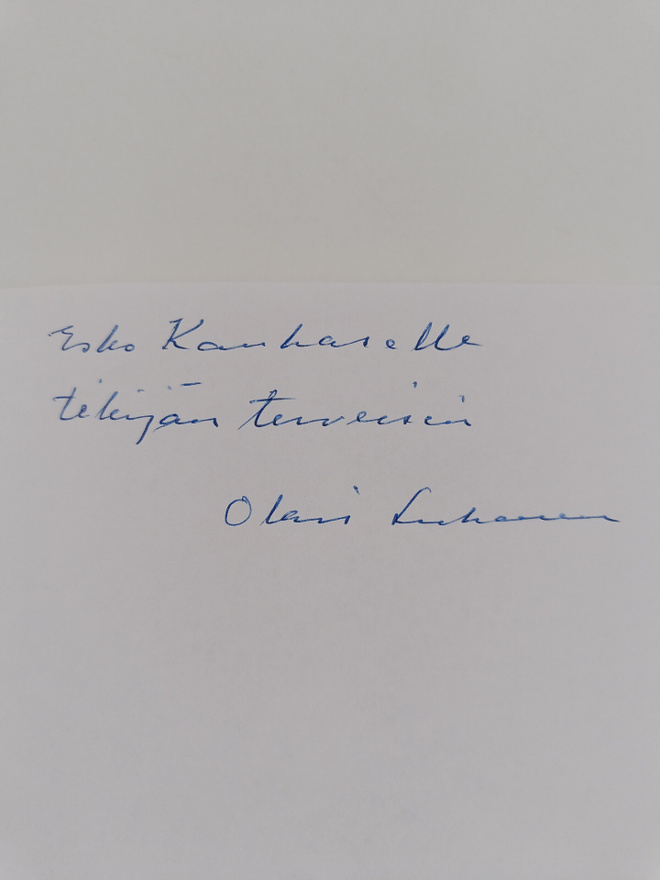 Esko Kankaselle
tekijän terveisin
Olavi